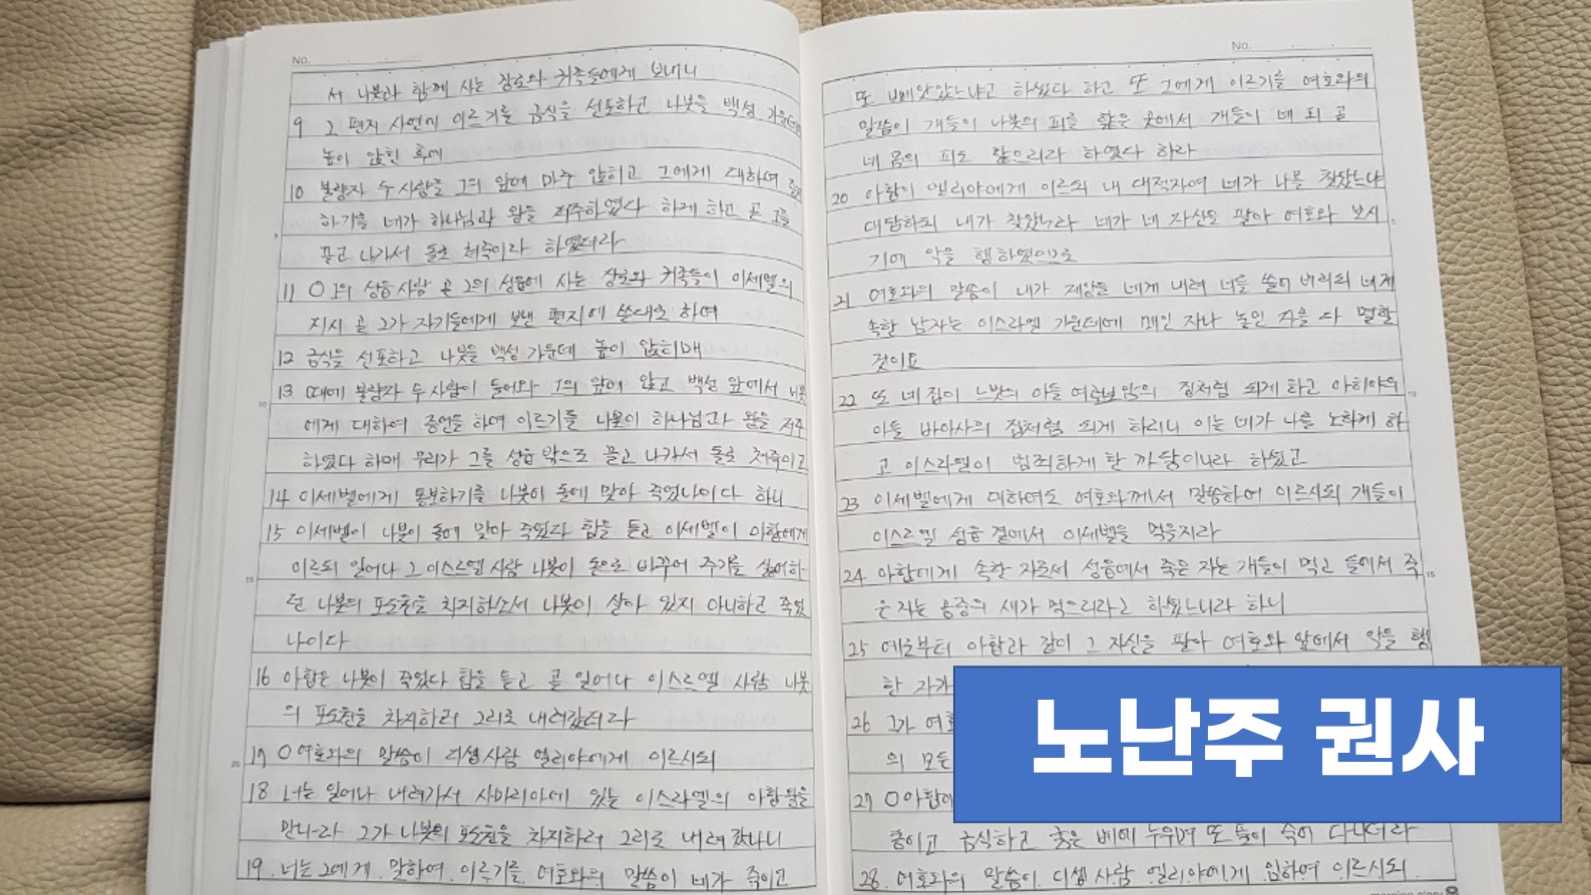 No.
서 나봇과 함께 사는 장로와 귀족들에게 보내니
9 그 편지 사연에 이르기를 금식을 선포하고 나봇을 백성 가운데에
높이 앉힌 후에
10 불량자 두 사람을 그의 앞에 마주 앉히고 그에게 대하여 증거
하기를 네가 하나님과 왕을 저주하였다 하게 하고 곧 그를
끌고 나가서 돌로 쳐죽이라 하였더라
11 ○ 그의 성읍 사람 곧 그의 성읍에 사는 장로와 귀족들이 이세벨의
지시 곧 그가 자기들에게 보낸 편지에 쓴대로 하여
12 금식을 선포하고 나봇을 백성 가운데 높이 앉히매
13 때에 불량자 두 사람이 들어와 그의 앞에 앉고 백성 앞에서 나봇
에게 대하여 증언을 하여 이르기를 나봇이 하나님과 왕을 저주
하였다 하매 무리가 그를 성읍 밖으로 끌고 나가서 돌로 쳐죽이고
14 이세벨에게 통보하기를 나봇이 돌에 맞아 죽었나이다 하니
15 이세벨이 나봇이 돌에 맞아 죽었다 함을 듣고 이세벨이 아합에게
이르되 일어나 그 이스르엘 사람 나봇이 돈으로 바꾸어 주기를 싫어하
던 나봇의 포도원을 차지하소서 나봇이 살아 있지 아니하고 죽었
나이다
16 아합은 나봇이 죽었다 함을 듣고 곧 일어나 이스르엘 사람 나봇
의 포도원을 차지하러 그리로 내려갔더라
17 ○ 여호와의 말씀이 디셉사람 엘리야에게 이르시되
18 너는 일어나 내려가서 사마리아에 있는 이스라엘의 아합왕을
만나라 그가 나봇의 포도원을 차지하러 그리로 내려갔나니
19. 너는 그에게 말하여 이르기를 여호와의 말씀이 네가 죽이고
No.
또 빼앗았느냐고 하셨다 하고 또 그에게 이르기를 여호와의
말씀이 개들이 나봇의 피를 핥은 곳에서 개들이 네 피 곧
네 몸의 피도 핥으리라 하였다 하라
20 아합이 엘리야에게 이르되 내 대적자여 네가 나를 찾았느냐
대답하되 내가 찾았노라 네가 네 자신을 팔아 여호와 보시
기에 악을 행하였으므로
21 여호와의 말씀이 내가 재앙을 네게 내려 너를 쓸어 버리되 네게
속한 남자는 이스라엘 가운데에 매인 자나 놓인 자를 다 멸할
것이요
22 또 네 집이 느밧의 아들 여로보암의 집처럼 되게 하고 아히야의
아들 바아사의 집처럼 되게 하리니 이는 네가 나를 노하게 하
고 이스라엘이 범죄하게 한 까닭이니라 하셨고
23 이세벨에게 대하여도 여호와께서 말씀하여 이르시되 개들이
이스르엘 성읍 곁에서 이세벨을 먹을지라
24 아합에게 속한 자로서 성읍에서 죽은 자는 개들이 먹고 들에서 죽
은 자는 공중의 새가 먹으리라고 하셨느니라 하니
25 예로부터 아합과 같이 그 자신을 팔아 여호와 앞에서 악을 행
한 자가
26 그가
의 모든
27 ○ 아합이
종이고 금식하고 굵은 베에 누우며 또 풀이 죽어 다니더라
28. 여호와의 말씀이 디셉 사람 엘리야에게 임하여 이르시되
노난주 권사